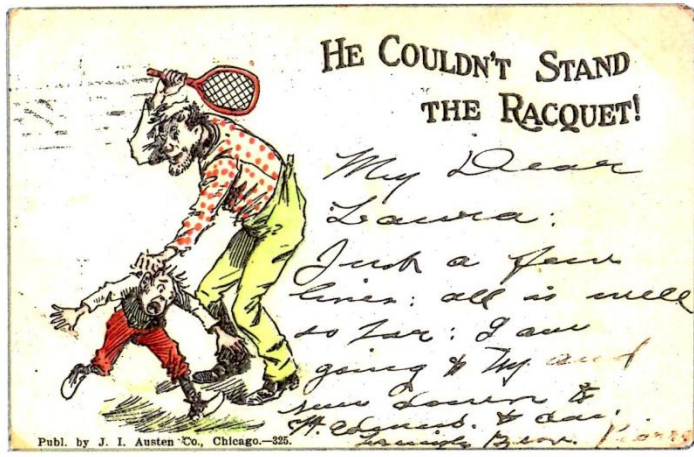 HE COULDN'T STAND
THE RACQUET!
My Dear
Laura:
Just a few
lines: all is well
so far: I am
going to Ny. and
down to
Publ. by J. I. Austen Co., Chicago.—325.